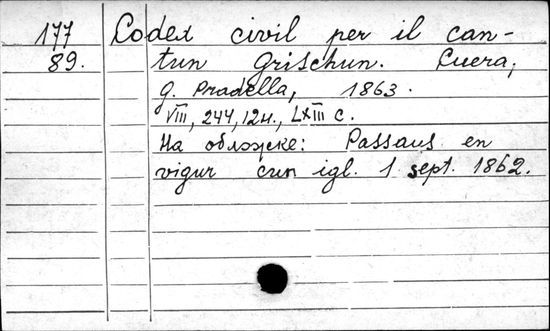 177 Codex civil per il can-
89. tun Grischun. Cuera,
g. Pradella, 1863.
VIII, 244, 12 н., LXIII с.
На обложке: Passaus en
vigur cun igl. 1 sept. 1862.